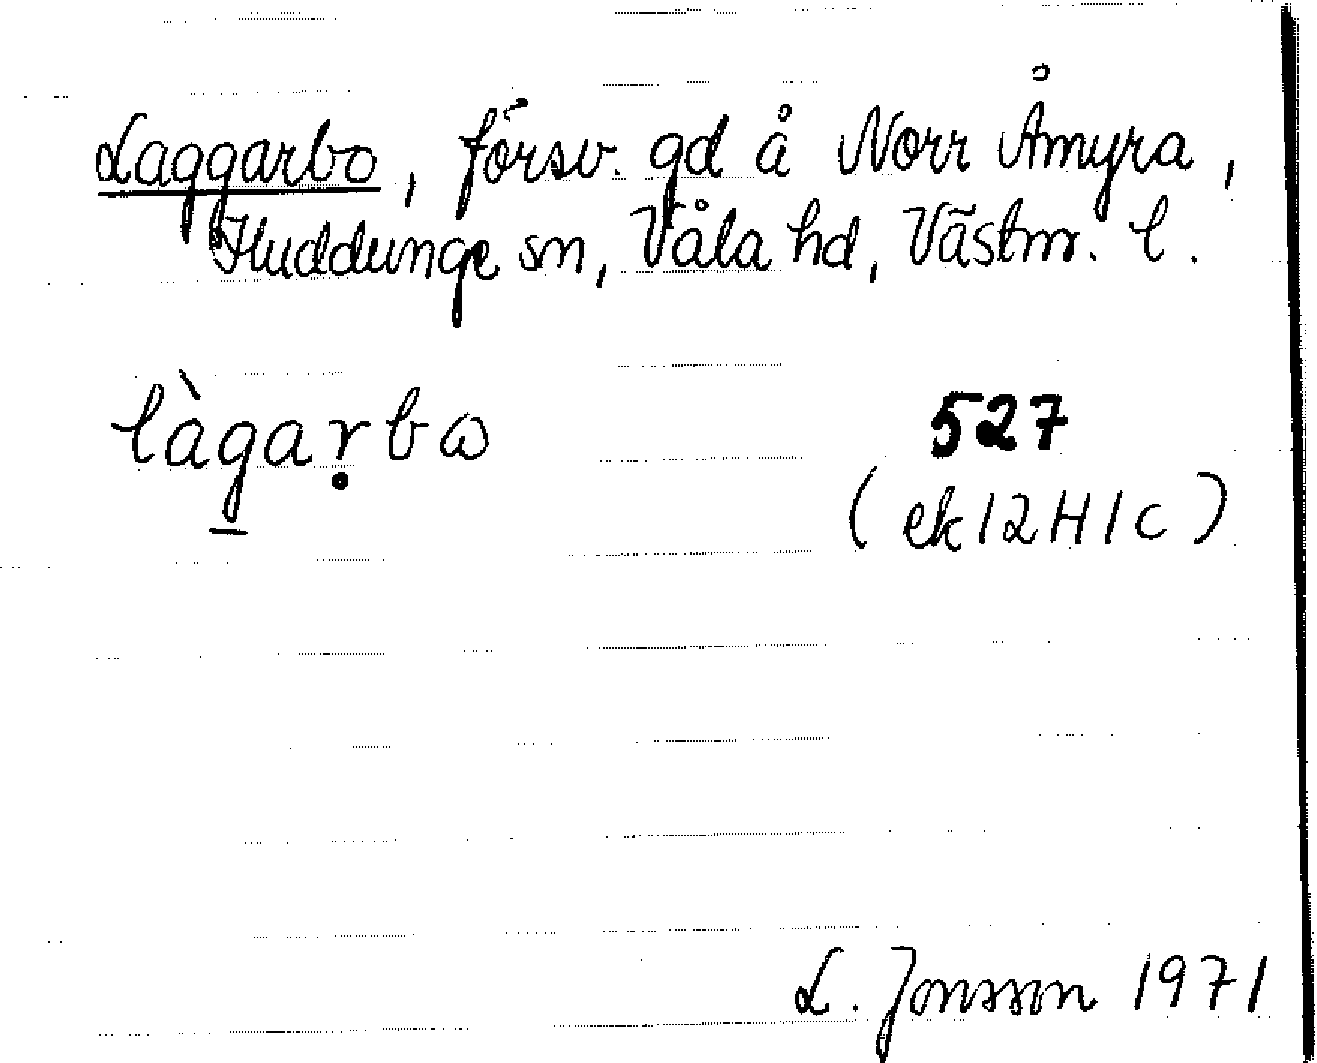 Laggarbo, försv. gd å Norr Åmyra,
Huddunge sn, Våla hd, Västm. l.
làg̲aṛbɷ 527
(ek 12H1c)
L. Jonsson 1971